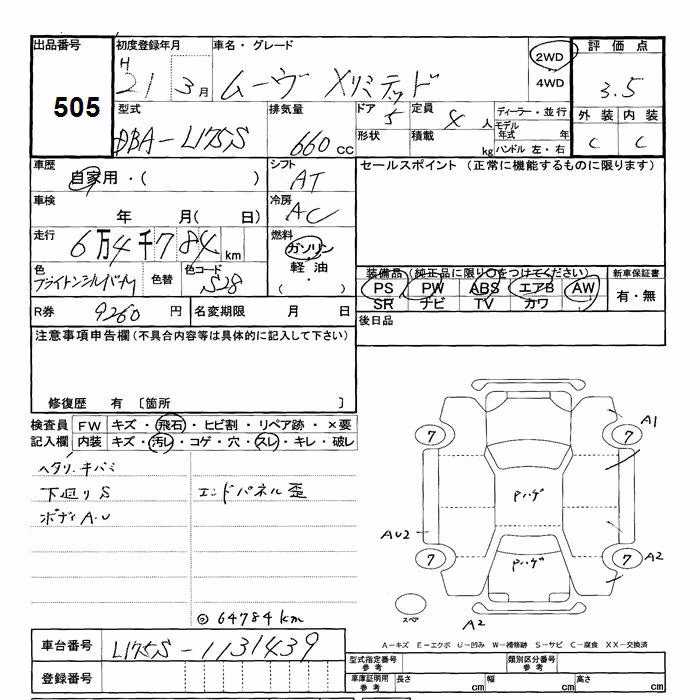 出品番号 初度登録年月 車名・グレード 評価点
505
H 21 3月 ムーヴ Xリミテッド 2WD 4WD 3.5
型式 排気量 ドア 5 定員 4 人 ディーラー・並行 外装 内装
DBA-L175S 660 CC 形状 積載 kg モデル年式 年 C C
ハンドル 左・右
車歴 自家用・( ) シフト AT セールスポイント (正常に機能するものに限ります)
車検 年 月( 日) 冷房 AC
走行 6万4千784 km 燃料 ガソリン 軽油 ( ・ )
色 ブライトシルバーM 色替 色コード S28
装備品 (純正品に限り○をつけてください) 新車保証書
PS PW ABS エアB AW 有・無
SR ナビ TV カワ
R券 9260 円 名変期限 月 日 後日品
注意事項申告欄 (不具合内容等は具体的に記入して下さい)
修復歴 有 〔箇所 〕
検査員 FW キズ・飛石・ヒビ割・リペア跡・×要
記入欄 内装 キズ・汚レ・コゲ・穴・スレ・キレ・破レ
下廻りS エンドパネル歪
ボディA.U
◎ 64784km
A1
7 7
Pハゲ
AU2
7 7 A2
Pハゲ
スペア A2
A-キズ E-エクボ U-凹み W-補修跡 S-サビ C-腐食 XX-交換済
車台番号 L175S-1131439
型式指定番号 参考 類別区分番号 参考
登録番号
車庫証明用 参考 長さ cm 幅 cm 高さ cm